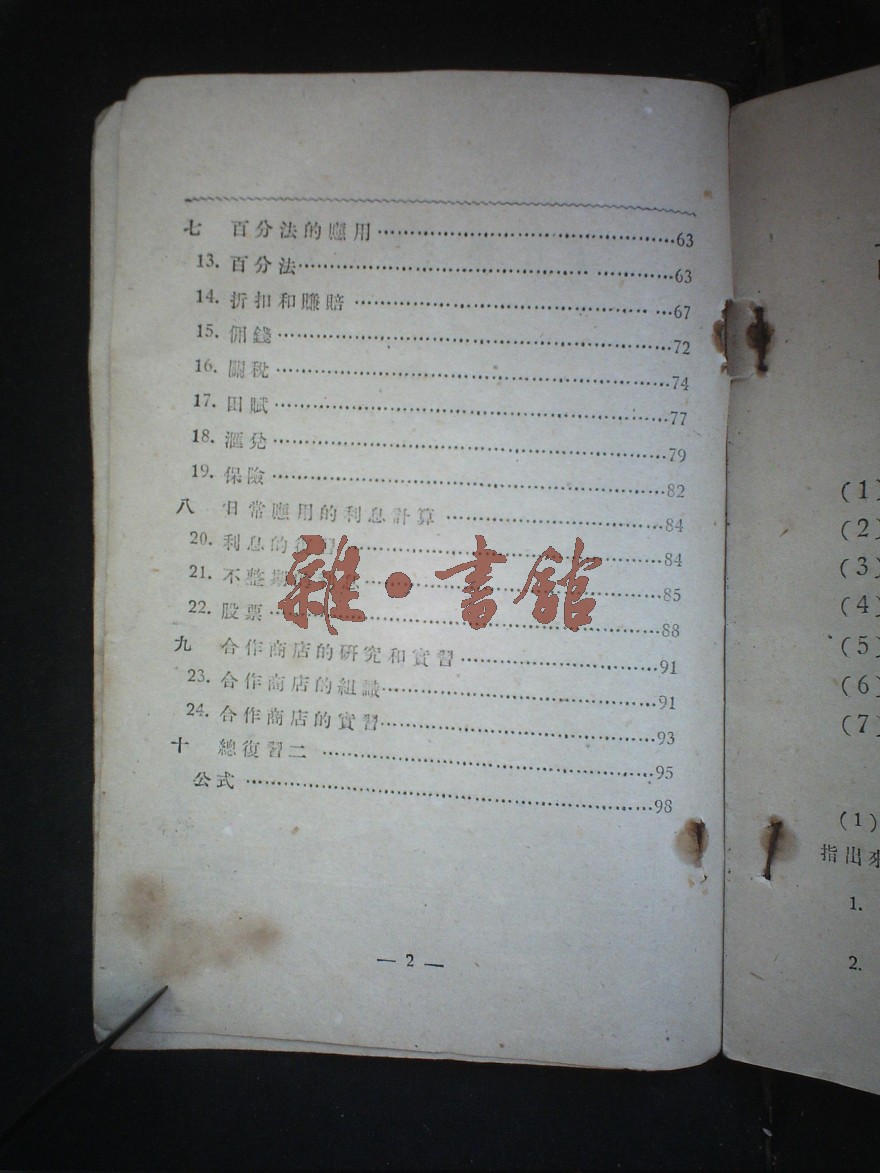 七 百分法的應用……63
13. 百分法……63
14. 折扣和賺賠……67
15. 佣錢……72
16. 關稅……74
17. 田賦……77
18. 滙兌……79
19. 保險……82
八 日常應用的利息計算……84
20. 利息的復習……84
21. 不整期……85
22. 股票……88
九 合作商店的研究和實習……91
23. 合作商店的組識……91
24. 合作商店的實習……93
十 總復習二……95
公式……98
— 2 —
雜·書館
(1)
(2)
(3)
(4)
(5)
(6)
(7)
(1)
指出來
1.
2.